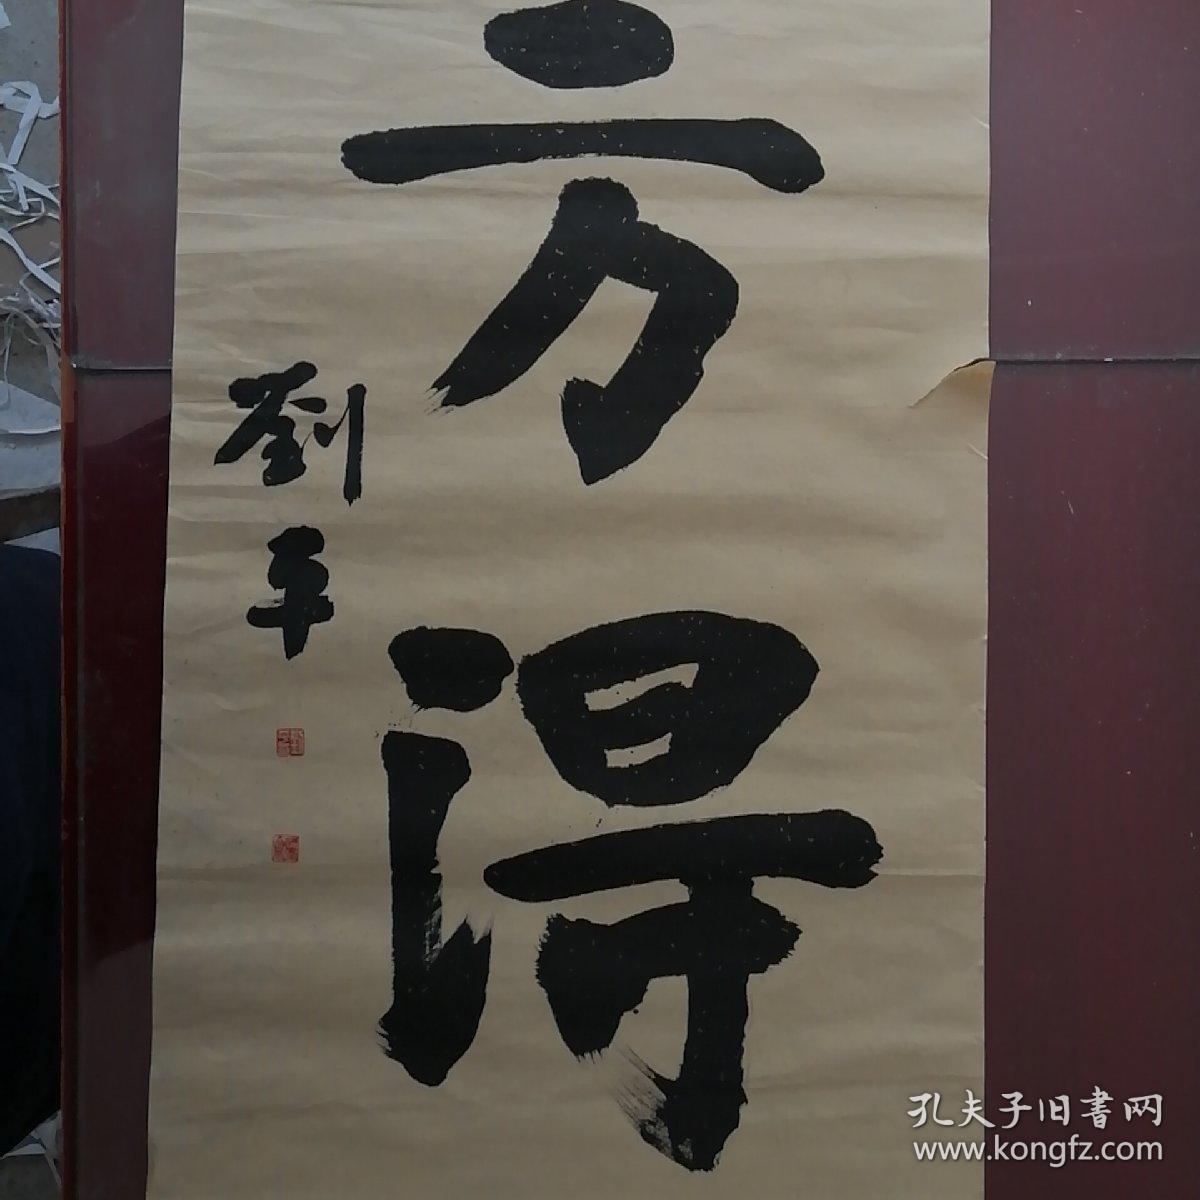 方得
劉平
孔夫子旧書网
www.kongfz.com